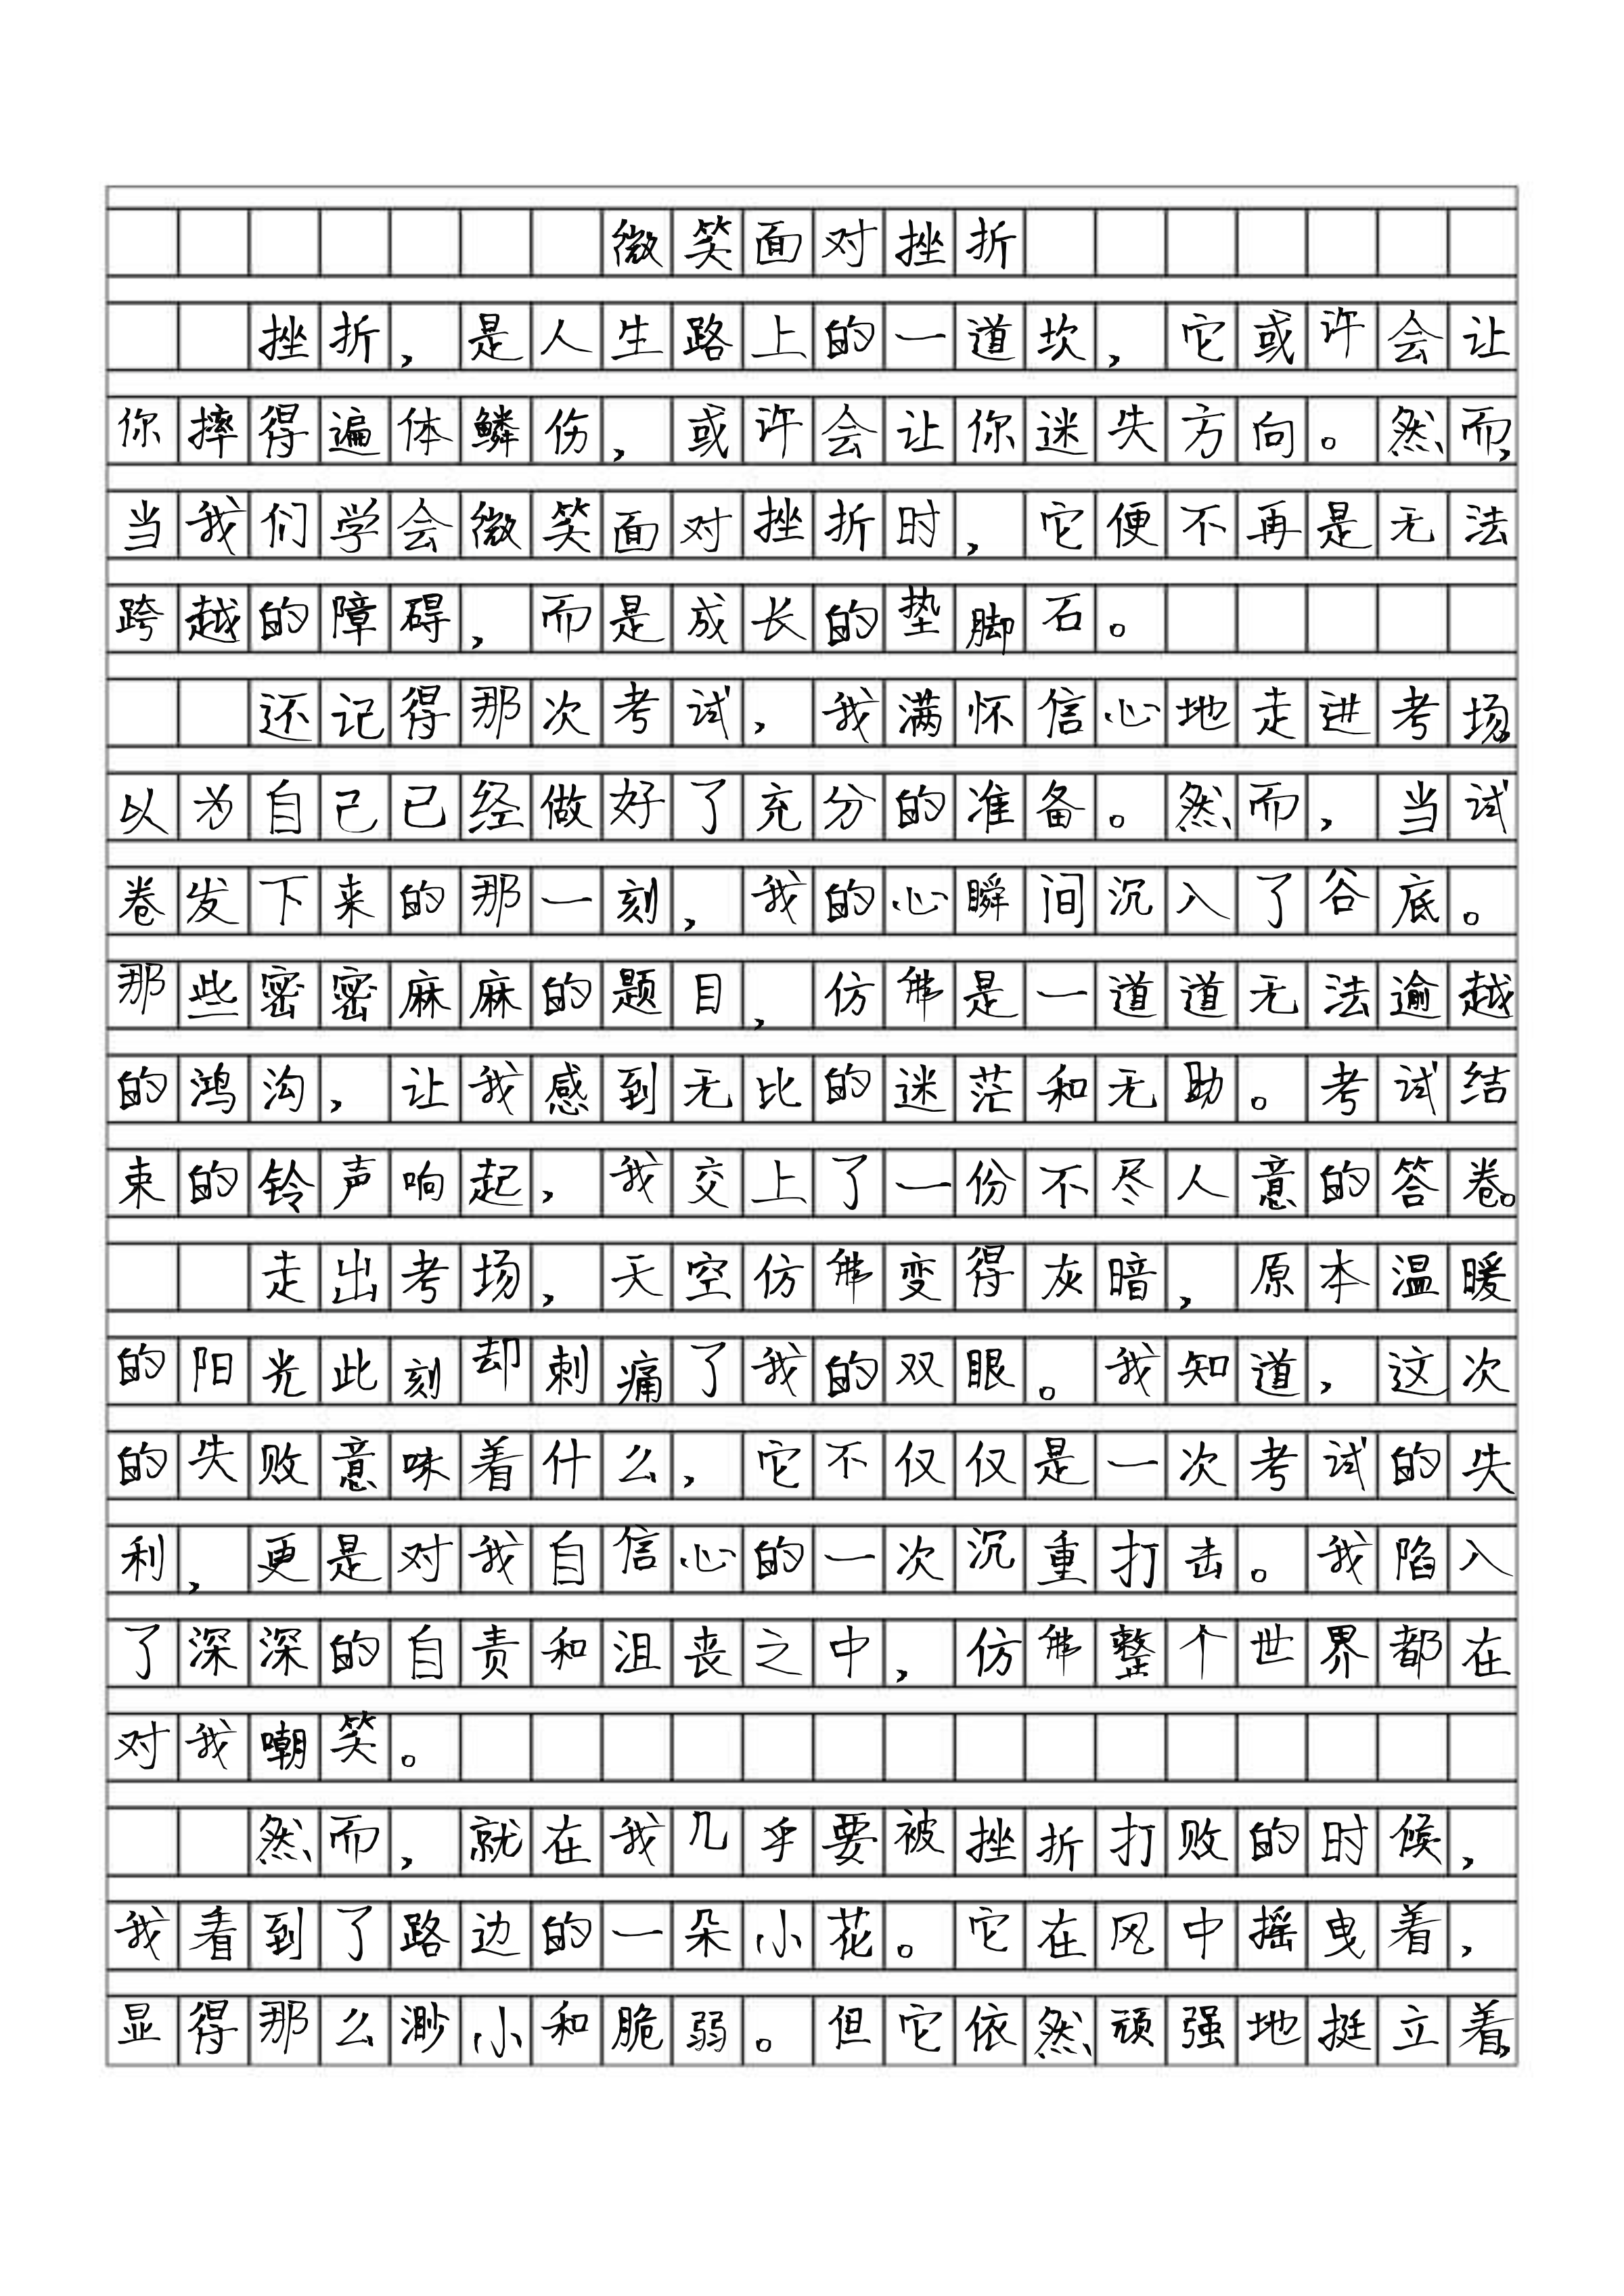 微笑面对挫折
挫折，是人生路上的一道坎，它或许会让
你摔得遍体鳞伤，或许会让你迷失方向。然而，
当我们学会微笑面对挫折时，它便不再是无法
跨越的障碍，而是成长的垫脚石。
还记得那次考试，我满怀信心地走进考场，
以为自己已经做好了充分的准备。然而，当试
卷发下来的那一刻，我的心瞬间沉入了谷底。
那些密密麻麻的题目，仿佛是一道道无法逾越
的鸿沟，让我感到无比的迷茫和无助。考试结
束的铃声响起，我交上了一份不尽人意的答卷。
走出考场，天空仿佛变得灰暗，原本温暖
的阳光此刻却刺痛了我的双眼。我知道，这次
的失败意味着什么，它不仅仅是一次考试的失
利，更是对我自信心的一次沉重打击。我陷入
了深深的自责和沮丧之中，仿佛整个世界都在
对我嘲笑。
然而，就在我几乎要被挫折打败的时候，
我看到了路边的一朵小花。它在风中摇曳着，
显得那么渺小和脆弱。但它依然顽强地挺立着，